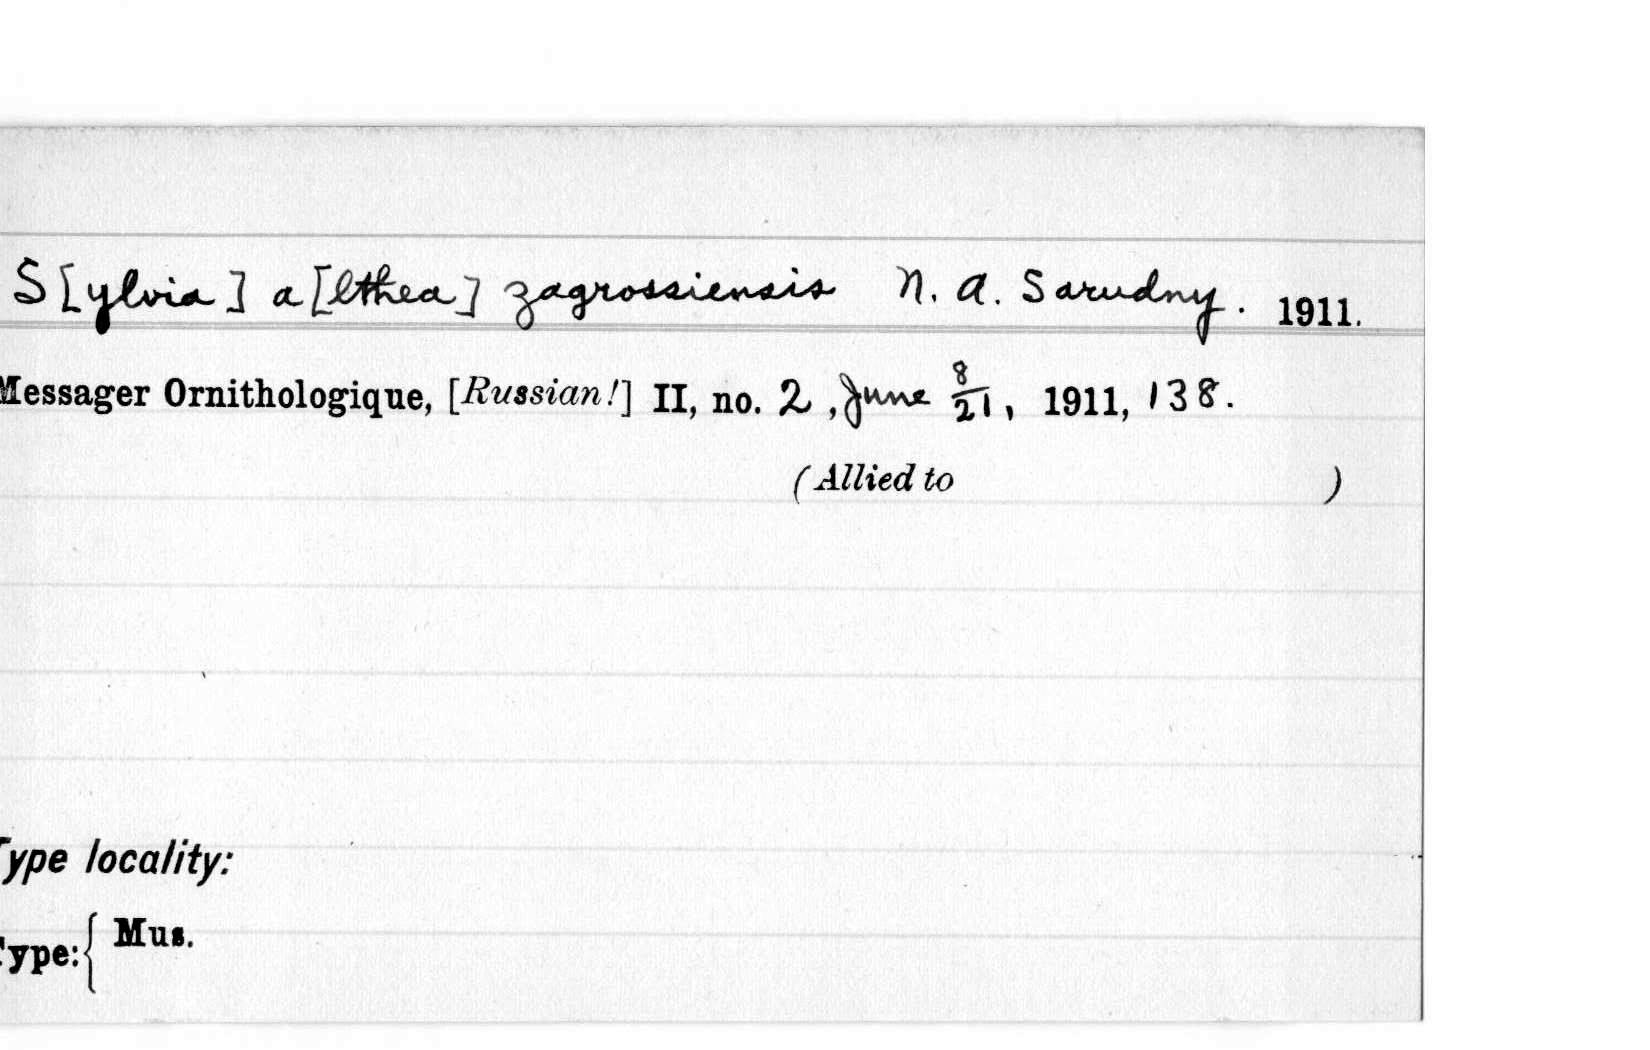 S[ylvia] a[lthea] zagrossiensis N. A. Sarudny. 1911.
Messager Ornithologique, [Russian!] II, no. 2, June 8/21, 1911, 138.
(Allied to )
Type locality:
Type: { Mus.